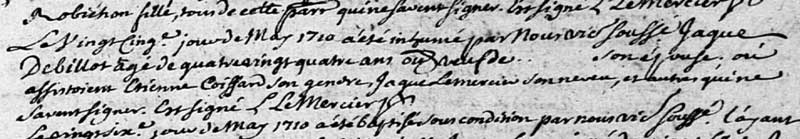 Robichon fille, tous de cette parr qui ne savent signer. Est signé L LeMercier
Le Vingt Cinqe. jour de May 1710 a été inhumé par Nous vic soussé Jaque
Debillot agé de quatre vingt quatre ans ou veuf de . . son épouse. où
assistoient Etienne Coiffard son gendre, Jaque Lemercier son neveu, et autres qui ne
savent signer. Est signé L LeMercier
Le vingt sixe. jour de May 1710 a été baptisé sous condition par nous vic soussé. l'ayant